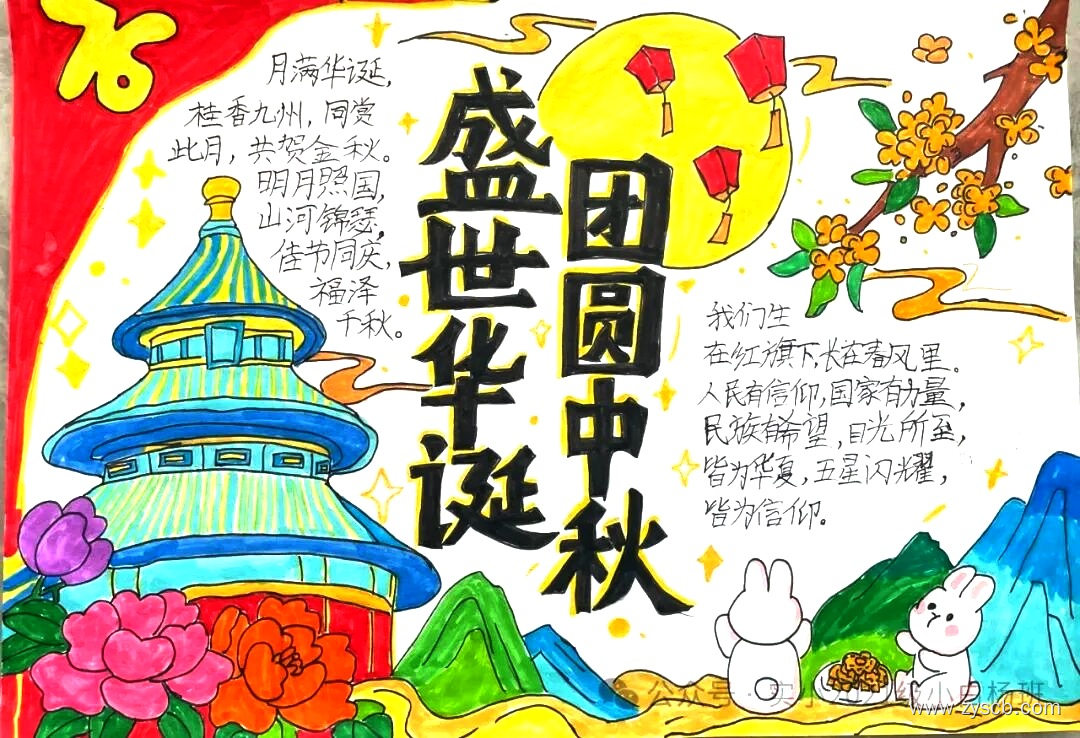 76
月满华诞,
桂香九州,同赏
此月,共贺金秋。
明月照国,
山河锦瑟,
佳节同庆,
福泽
千秋。
盛世华诞
团圆中秋
我们生
在红旗下,长在春风里。
人民有信仰,国家有力量,
民族有希望,目光所至,
皆为华夏,五星闪耀,
皆为信仰。
公众号·实小
小白杨班
www.zyscb.com